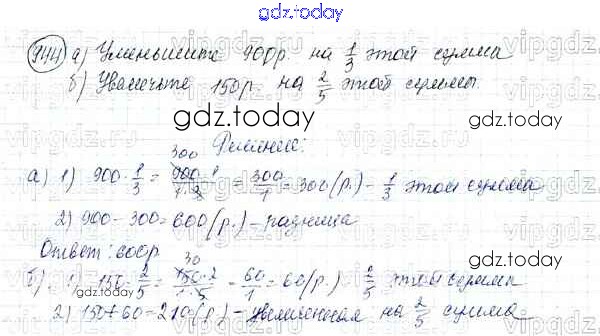 gdz.today
944 а) Уменьшите 900р. на 1/3 этой сумма
б) Увеличьте 150р. на 2/5 этой суммы.
gdz.today
Решение:
а) 1) 900·1/3 = 900·1/1·3 = 300/1 = 300(р.) - 1/3 этой сумма
300
2) 900 - 300 = 600(р.) - разница
Ответ: 600р.
30
б) 1) 150·2/5 = 150·2/1·5 = 60/1 = 60(р.) 2/5 этой сумма
gdz.today
2) 150+60=210(р.) - увеличенная на 2/5 сумма.
gdz.today